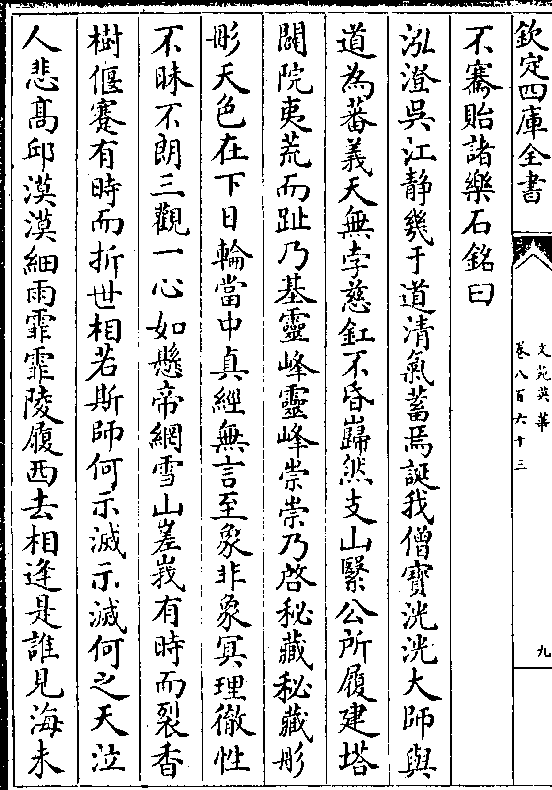 欽定四庫全書
文苑英華
卷八百六十三
九
不騫貽諸樂石銘曰
泓澄吳江靜幾于道清氣蓄焉誕我僧寳洸洸大師與
道為蕃義天無孛慈釭不昏巋然支山繄公所履建塔
闢院夷荒而趾乃基靈峰靈峰崇崇乃啓秘藏秘藏彤
彤天色在下日輪當中真經無言至象非象冥理徹性
不昧不朗三觀一心如懸帝網雪山嵳峩有時而裂香
樹偃蹇有時而折世相若斯師何示滅示滅何之天泣
人悲髙邱漠漠細雨霏霏陵履西去相逢是誰見海未